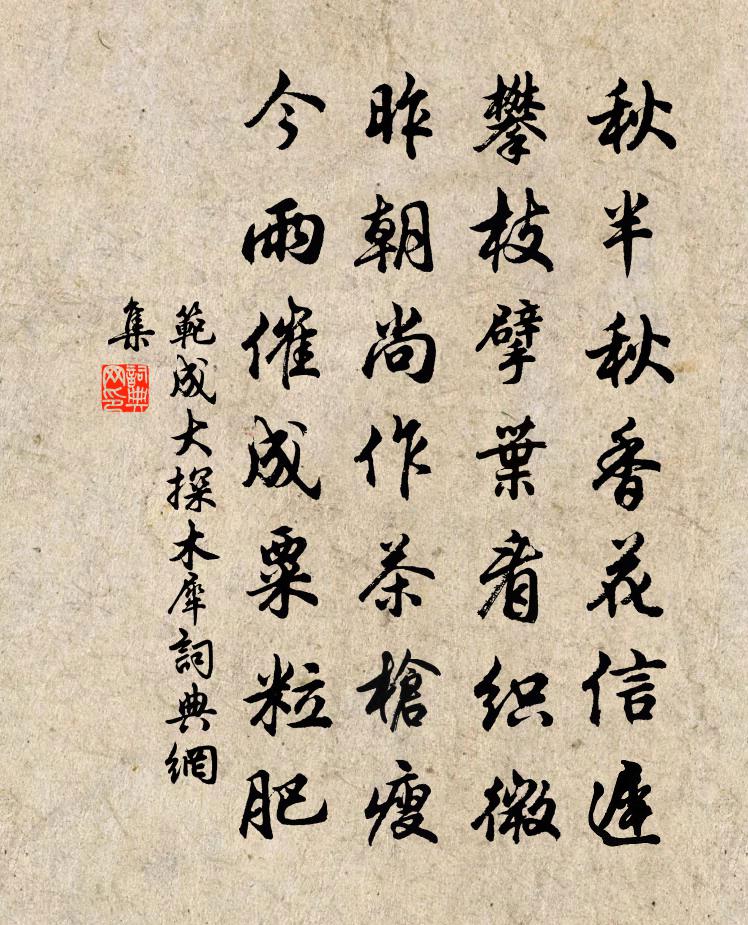 秋半秋香花信遲
攀枝擘葉看织微
昨朝尚作茶槍瘦
今雨催成粟粒肥
範成大探木犀詞典網
集
詞典
网印